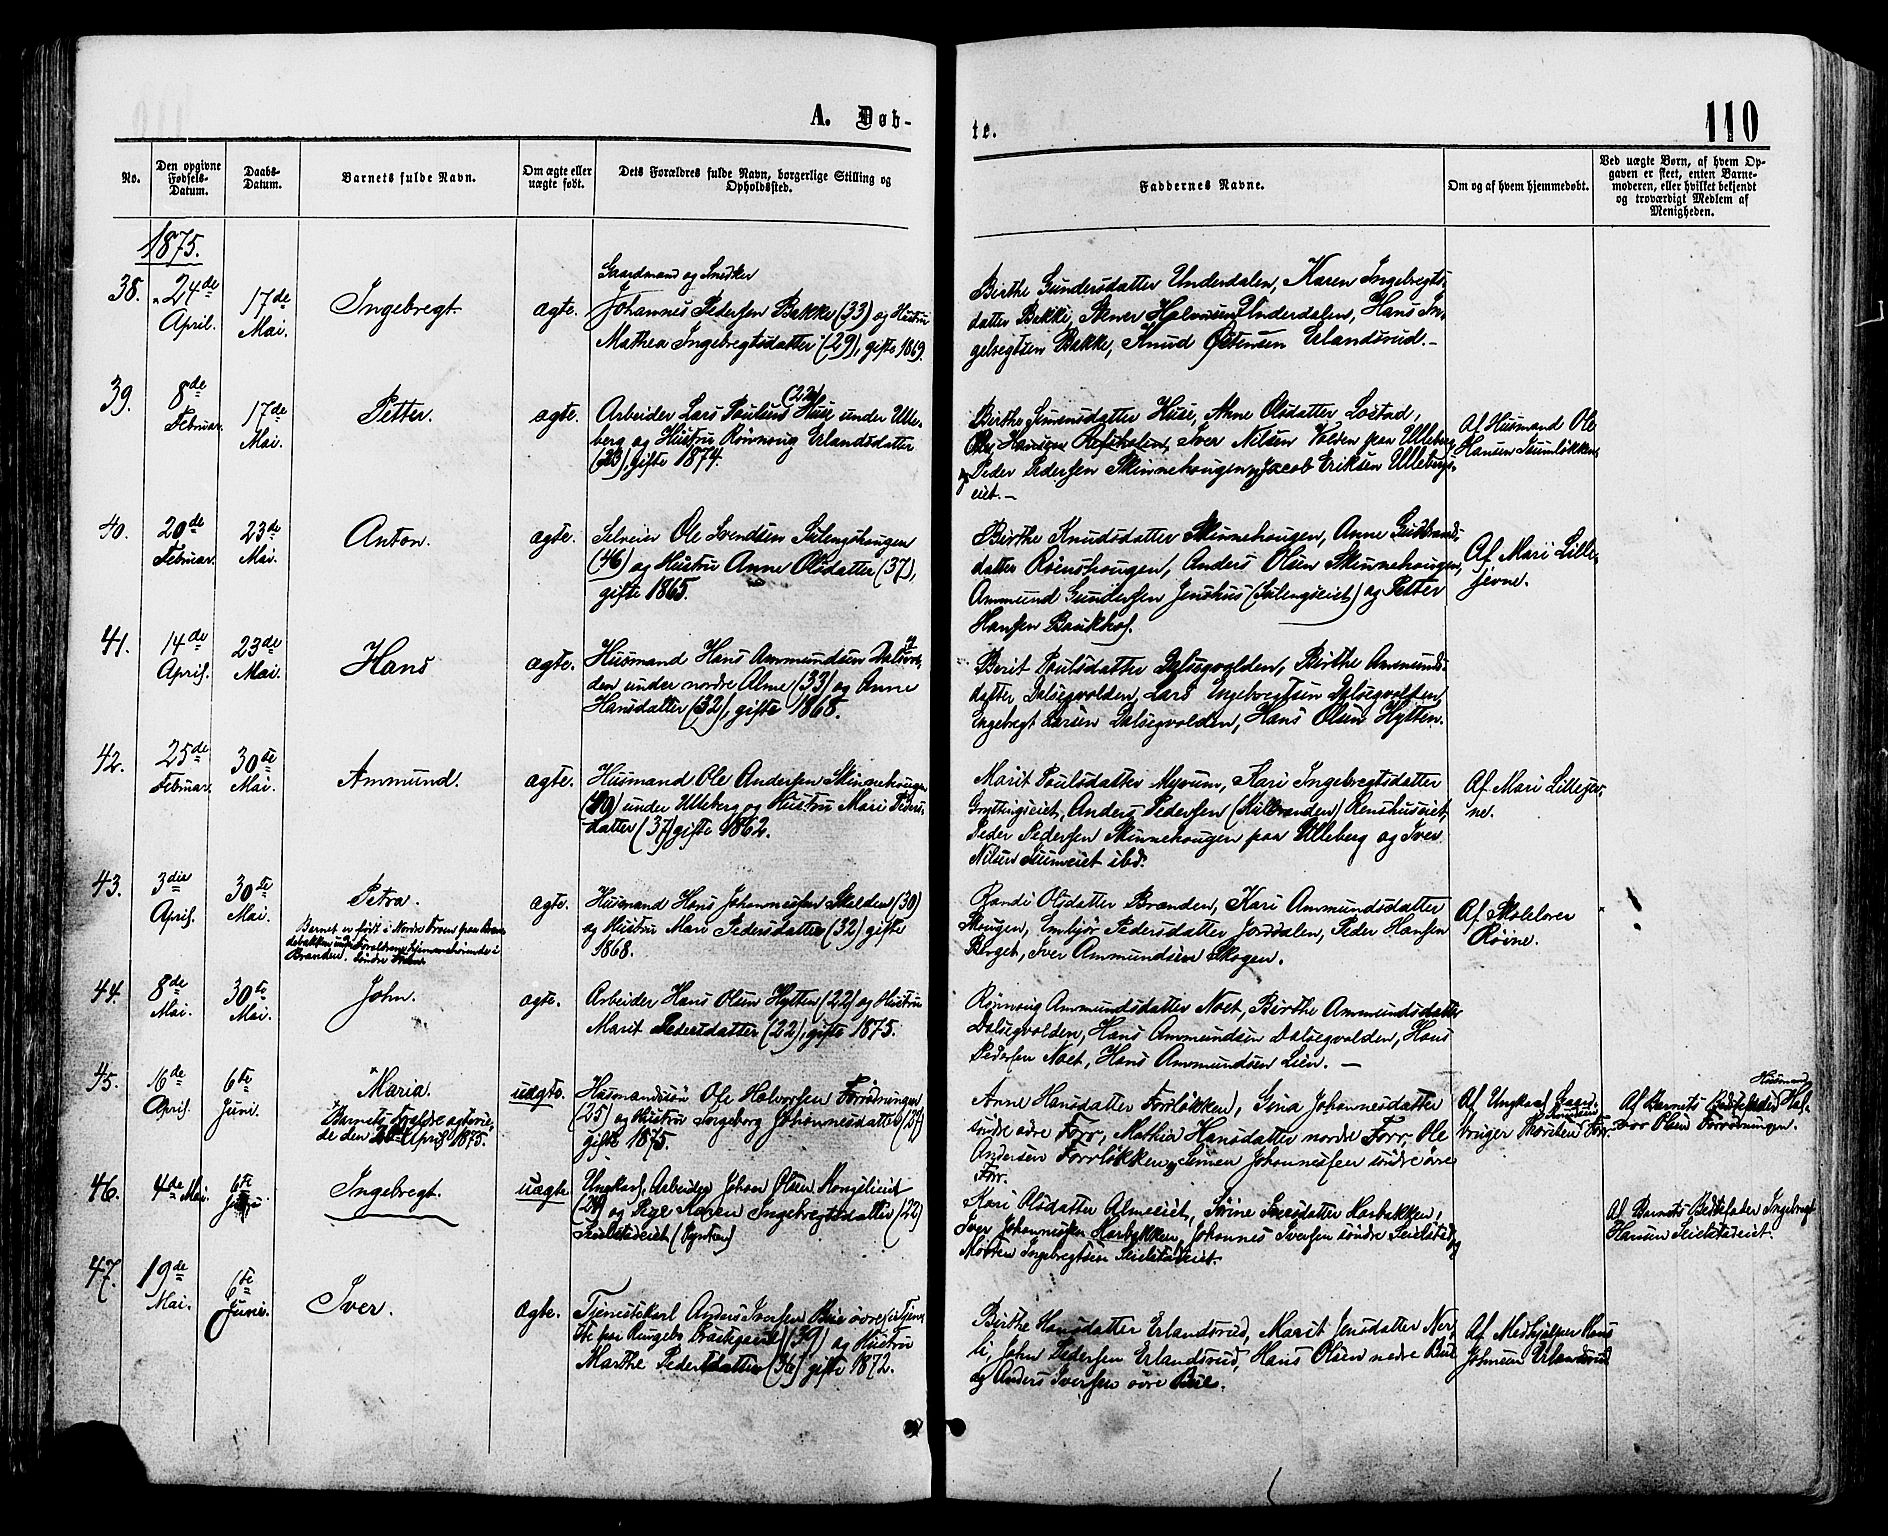 A. Døb-
te.
110
No.
Den opgivne Fødsels-Datum.
Daabs-Datum.
Barnets fulde Navn.
Om ægte eller uægte født.
Dets Forældres fulde Navn, borgerlige Stilling og Opholdssted.
Faddernes Navne.
Om og af hvem hjemmedøbt.
Ved uægte Børn, af hvem Op-
gaven er skeet, enten Barne-
moderen, eller hvilket bekjendt
og troværdigt Medlem af
Menigheden.
1875.
38.
24de April.
17de Mai.
Ingebregt
ægte.
Gaardmand og Snedker
Johannes Pedersen Bakke (33) og Hustru
Mathea Ingebregtsdatter (29), gifte 1869.
Birthe Gundersdatter Underdalen, Karen Ingebregts-
datter Bakke, Halvorsen Underdalen, Hans In-
gebregtsen Bakke, Knud Østensen Erlandsrud.-
39.
8de Februar.
17de Mai.
Petter.
ægte.
Arbeider Lars Poulsen (22) Huse under Ulle-
berg og Hustru Rønnoug Erlandsdatter
(23), gifte 1874.
Birthe Simensdatter Huse, Anne Olsdatter Lostad,
Ole Hansen Iver Nilsen Volden paa Ulleberg
Peder Pedersen Skinnehougen og Jacob Eriksen Ullebergs-
eiet.-
Af Husmand Ole
Hansen
40.
20de Februar.
23de Mai.
Anton.
ægte.
Selveier Ole Svendsen
(46) og Hustru Anne Olsdatter (37),
gifte 1865.
Birthe Knudsdatter Skinnehougen, Anne Gudbrands-
datter Røenshougen, Anders Olsen Skinnehougen,
Ammund Gundersen Jenshus og Petter
Hansen Baukhol.
Af Mari Lille-
jevne.
41.
14de April.
23de Mai.
Hans
ægte.
Husmand Hans Ammundsen Dalsegvol-
den under nordre Alme (33) og Anne
Hansdatter (32), gifte 1868.
Berit Poulsdatter Dalsegvolden, Birthe Ammunds-
datter Dalsegvolden, Lars Ingebregtsen Dalsegvolden,
Engebregt Larsen Dalsegvolden, Hans Olsen Hytten.
42.
25de Februar.
30te Mai.
Ammund.
ægte.
Husmand Ole Andersen Skinnehougen
(40) under Ulleberg og Hustru Mari Peders-
datter (37) gifte 1862.
Marit Poulsdatter Myrum, Kari Ingebregtsdatter
Gryttingseiet, Anders Pedersen (Kulbranden) Renshuseiet,
Peder Pedersen Skinnehougen paa Ulleberg og Iver
Nilsen ibd.
Af Mari Lillejev-
ne.
43.
3die April.
30te Mai.
Petra.
Barnet er født i Nordre Fron paa
Branden.
ægte.
Husmand Hans Johannessen (30)
og Hustru Mari Pedersdatter (32) gifte
1868.
Randi Olsdatter Branden, Kari Ammundsdatter
Skougen, Embjør Pedersdatter Jordalen, Peder Hansen
Berget, Iver Ammundsen Skogen.
Af Skolelærer
Røine.
44.
8de Mai.
30te Mai.
John.
ægte.
Arbeider Hans Olsen Hytten (22) og Hustru
Marit Pedersdatter (22), gifte 1875.
Rønnoug Ammundsdatter Noet, Birthe Ammundsdatter
Dalsegvolden, Hans Ammundsen Dalsegvolden, Hans
Pedersen Noet, Hans Ammundsen Lien. —
45.
16de April.
6te Juni.
Maria.
Barnets Forældre ægtevie-
de den April 1875.
uægte.
Husmandssøn Ole Halvorsen Forrødningen
(25) og Hustru Ingeborg Johannesdatter (27)
gifte 1875.
Anne Hansdatter Forrløkken, Gina Johannesdatter
søndre øvre Forr, Mathia Hansdatter nordre Forr, Ole
Andersen Forrløkken, Simen Johannessen søndre øvre
Forr.
Af Ungkarl Gaard-
bruger Forr.
Af Barnets Bedstefader Husmand Hal-
vor Olsen Forrødningen.
46.
4de Mai.
6te Juni
Ingebregt.
uægte
Ungkarl, Arbeider Johan Olsen Kongslieiet
(24) og Pige Karen Ingebregtsdatter (22)
Seielstadeiet
Kari Olsdatter Almeeiet, Sørine Iversdatter Harbakken,
Iver Johannessen Harbakken, Johannes Iversen søndre Seielstad og
Morten Ingebregtsen Seielstadeiet.
Af Barnets Bedstefader Ingebregt
Hansen Seielstadeiet.
47.
19de Mai.
6te Juni.
Iver.
ægte.
Tjenestekarl Anders Iversen Bue øvre (i Tjene-
ste paa Ringebo Præstegaard) (39) og Hustru
Marthe Pedersdatter (36) gifte 1872.
Birthe Hansdatter Erlandsrud, Marit Jensdatter Ner-
li, John Pedersen Erlandsrud, Hans Olsen nedre Bue
og Anders Iversen øvre Bue.
Af Medhjælper Hans
Johnsen Erlandsrud